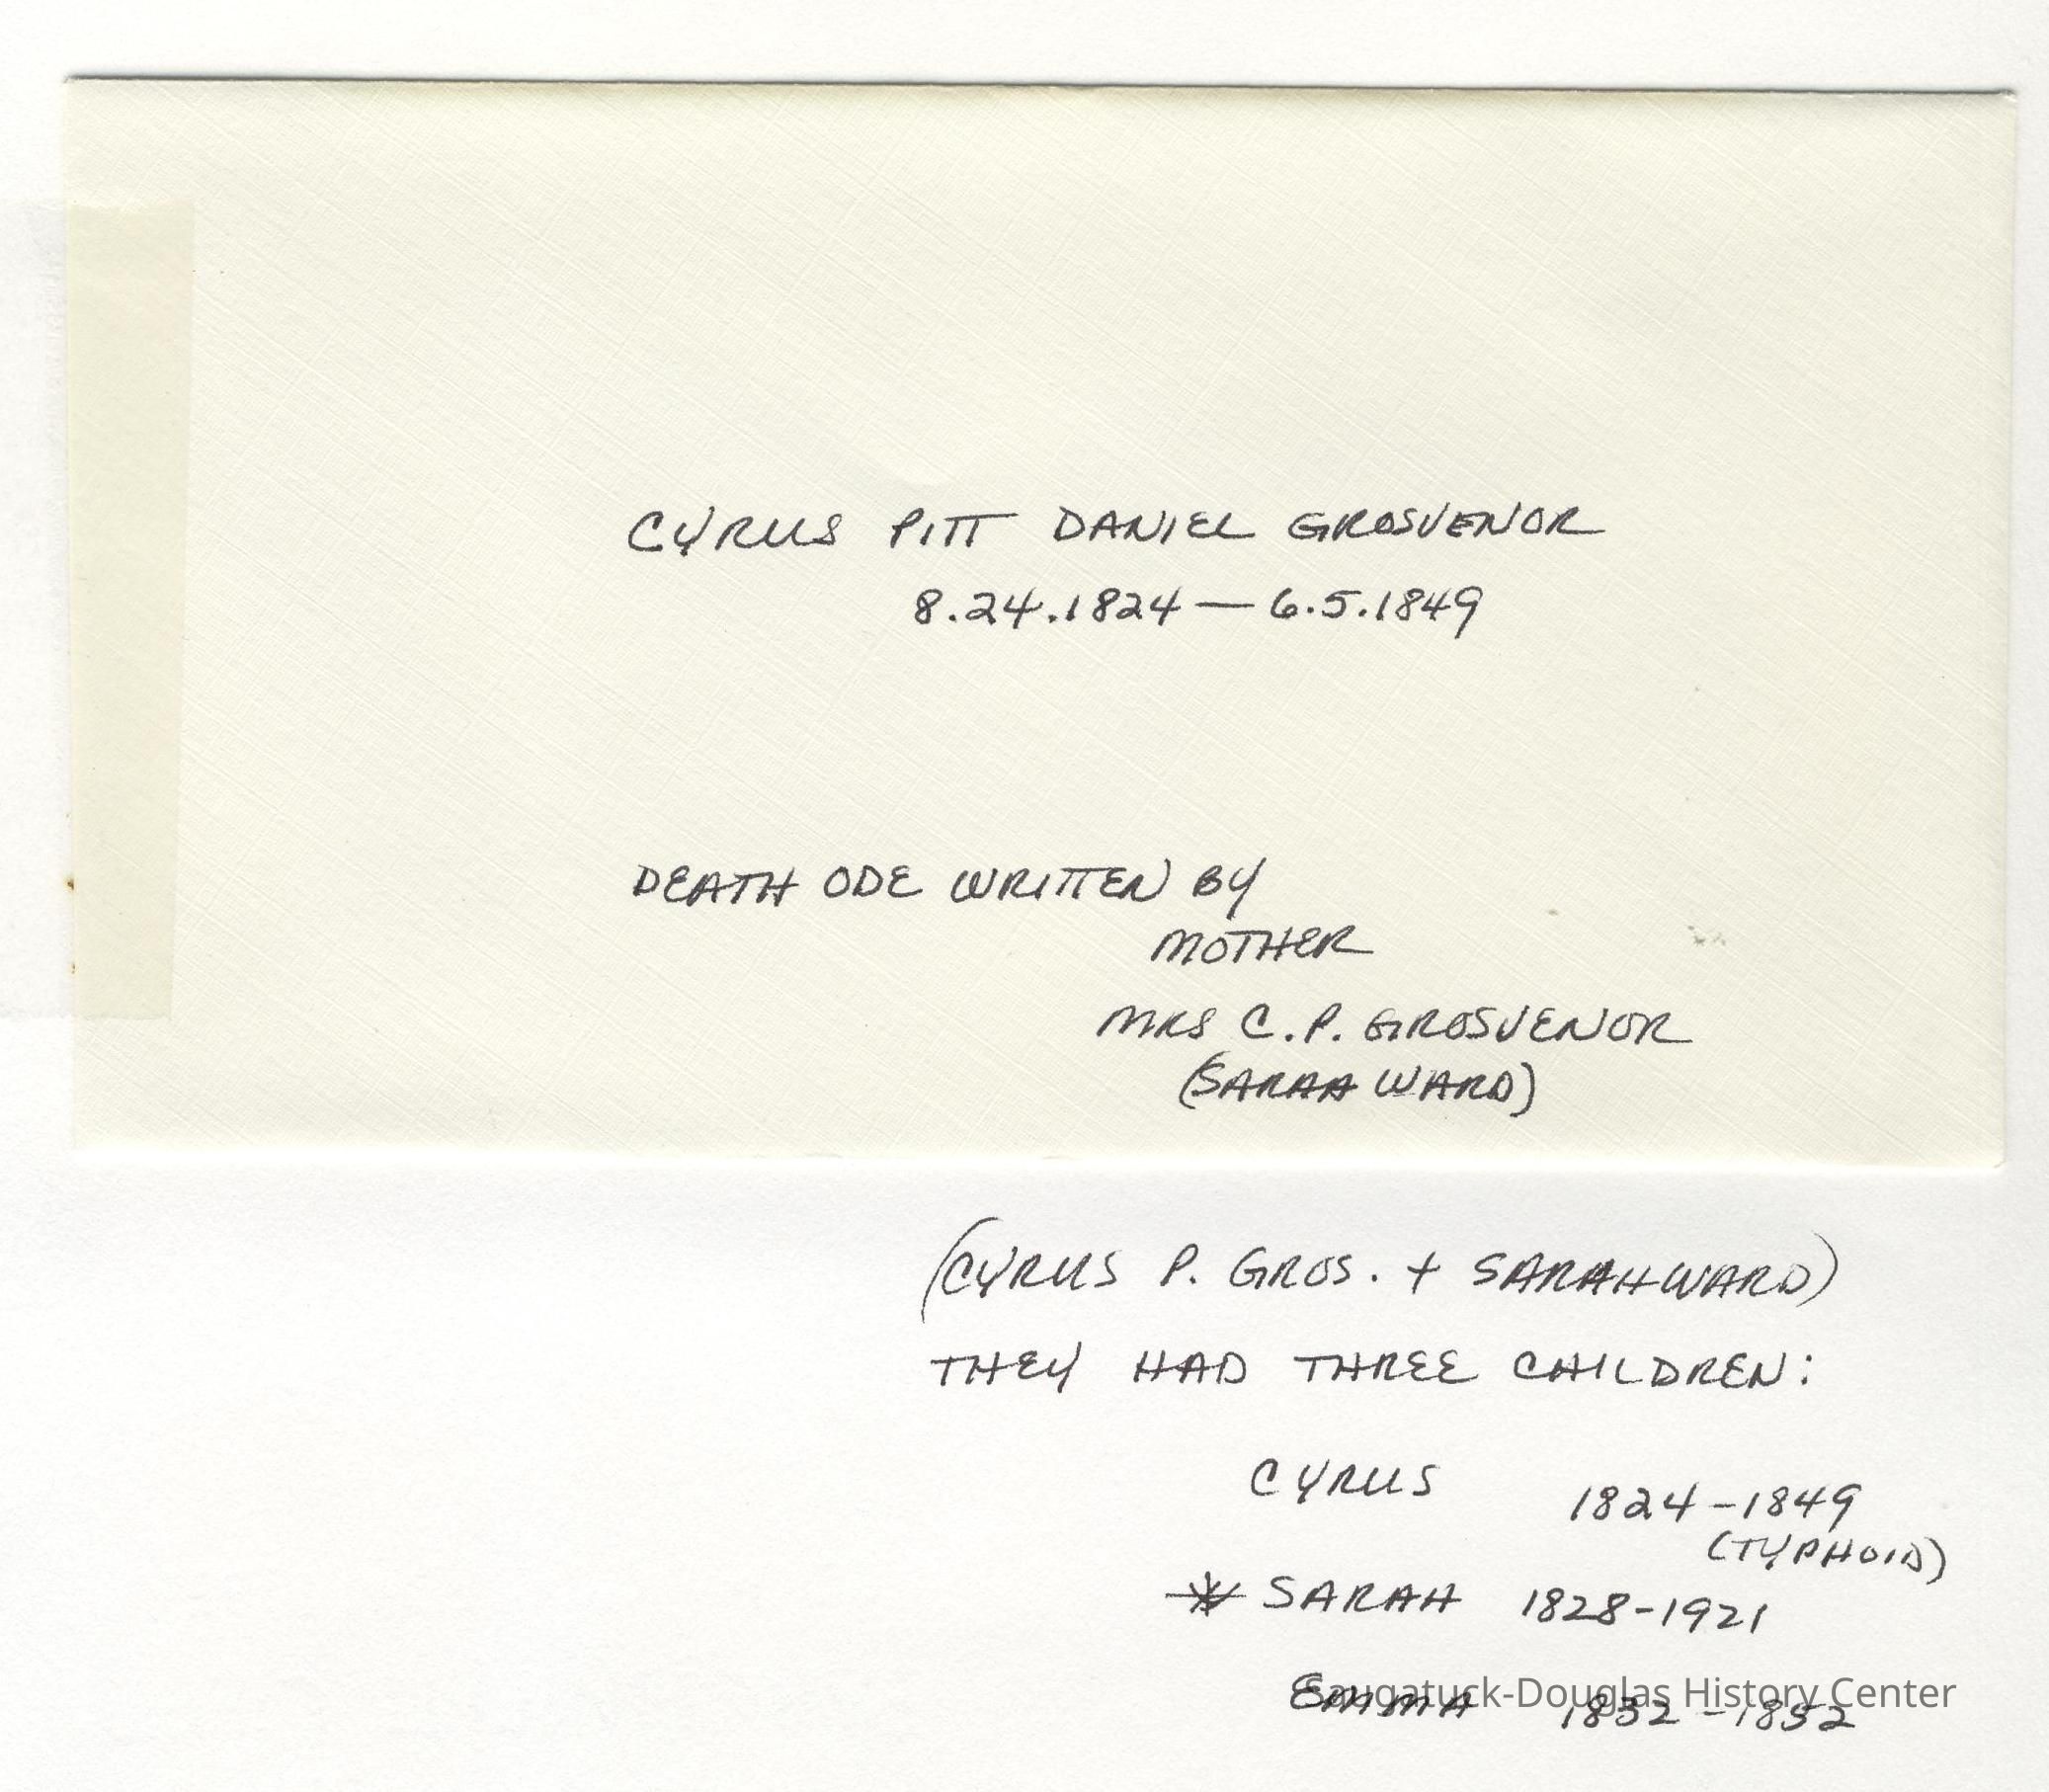 CYRUS PITT DANIEL GROSVENOR
8.24.1824 — 6.5.1849
DEATH ODE WRITTEN BY
MOTHER
MRS C.P. GROSVENOR
(SARAH WARD)
(CYRUS P. GROS. + SARAH WARD)
THEY HAD THREE CHILDREN:
CYRUS 1824-1849
(TYPHOID)
* SARAH 1828-1921
EMMA 1832-1852
Saugatuck-Douglas History Center